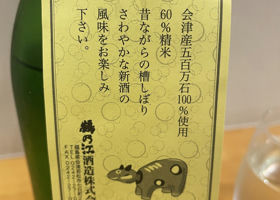 会津産五百万石100%使用
60%精米
昔ながらの槽しぼり
さわやかな新酒の
風味をお楽しみ
下さい。
鶴乃江酒造株式会
福島県会津若松市
TEL0242-27-
FAX0242-27-